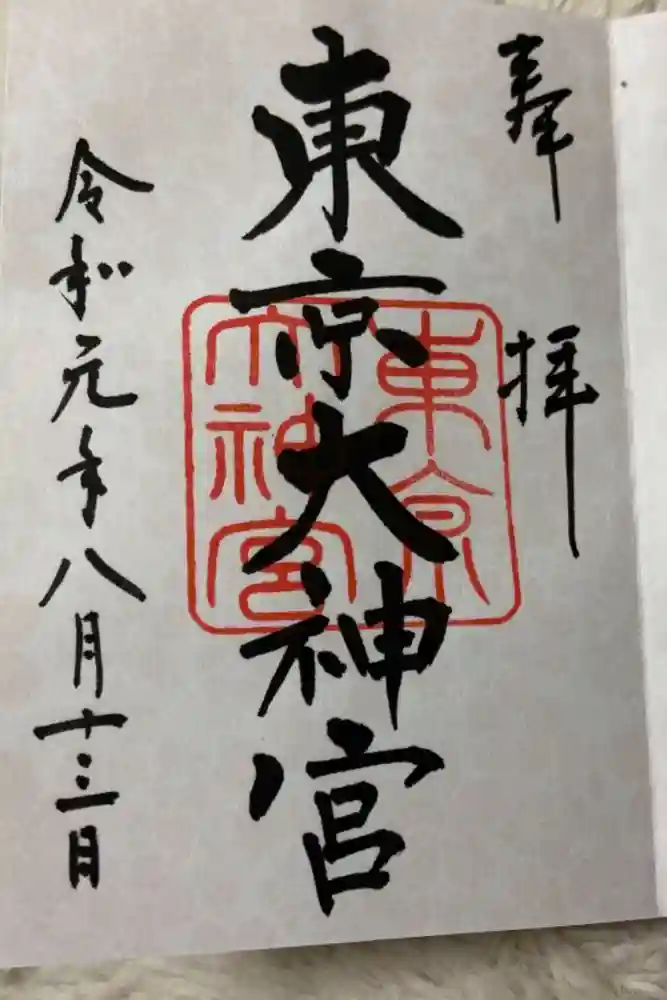 奉拝
東京大神宮
東京
大神宮
令和元年八月十三日